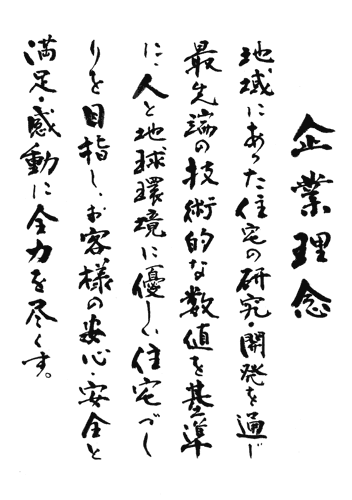 企業理念
地域にあった住宅の研究・開発を通じ
最先端の技術的な数値を基準
に、人と地球環境に優しい住宅づく
りを目指し、お客様の安心・安全と
満足・感動に全力を尽くす。